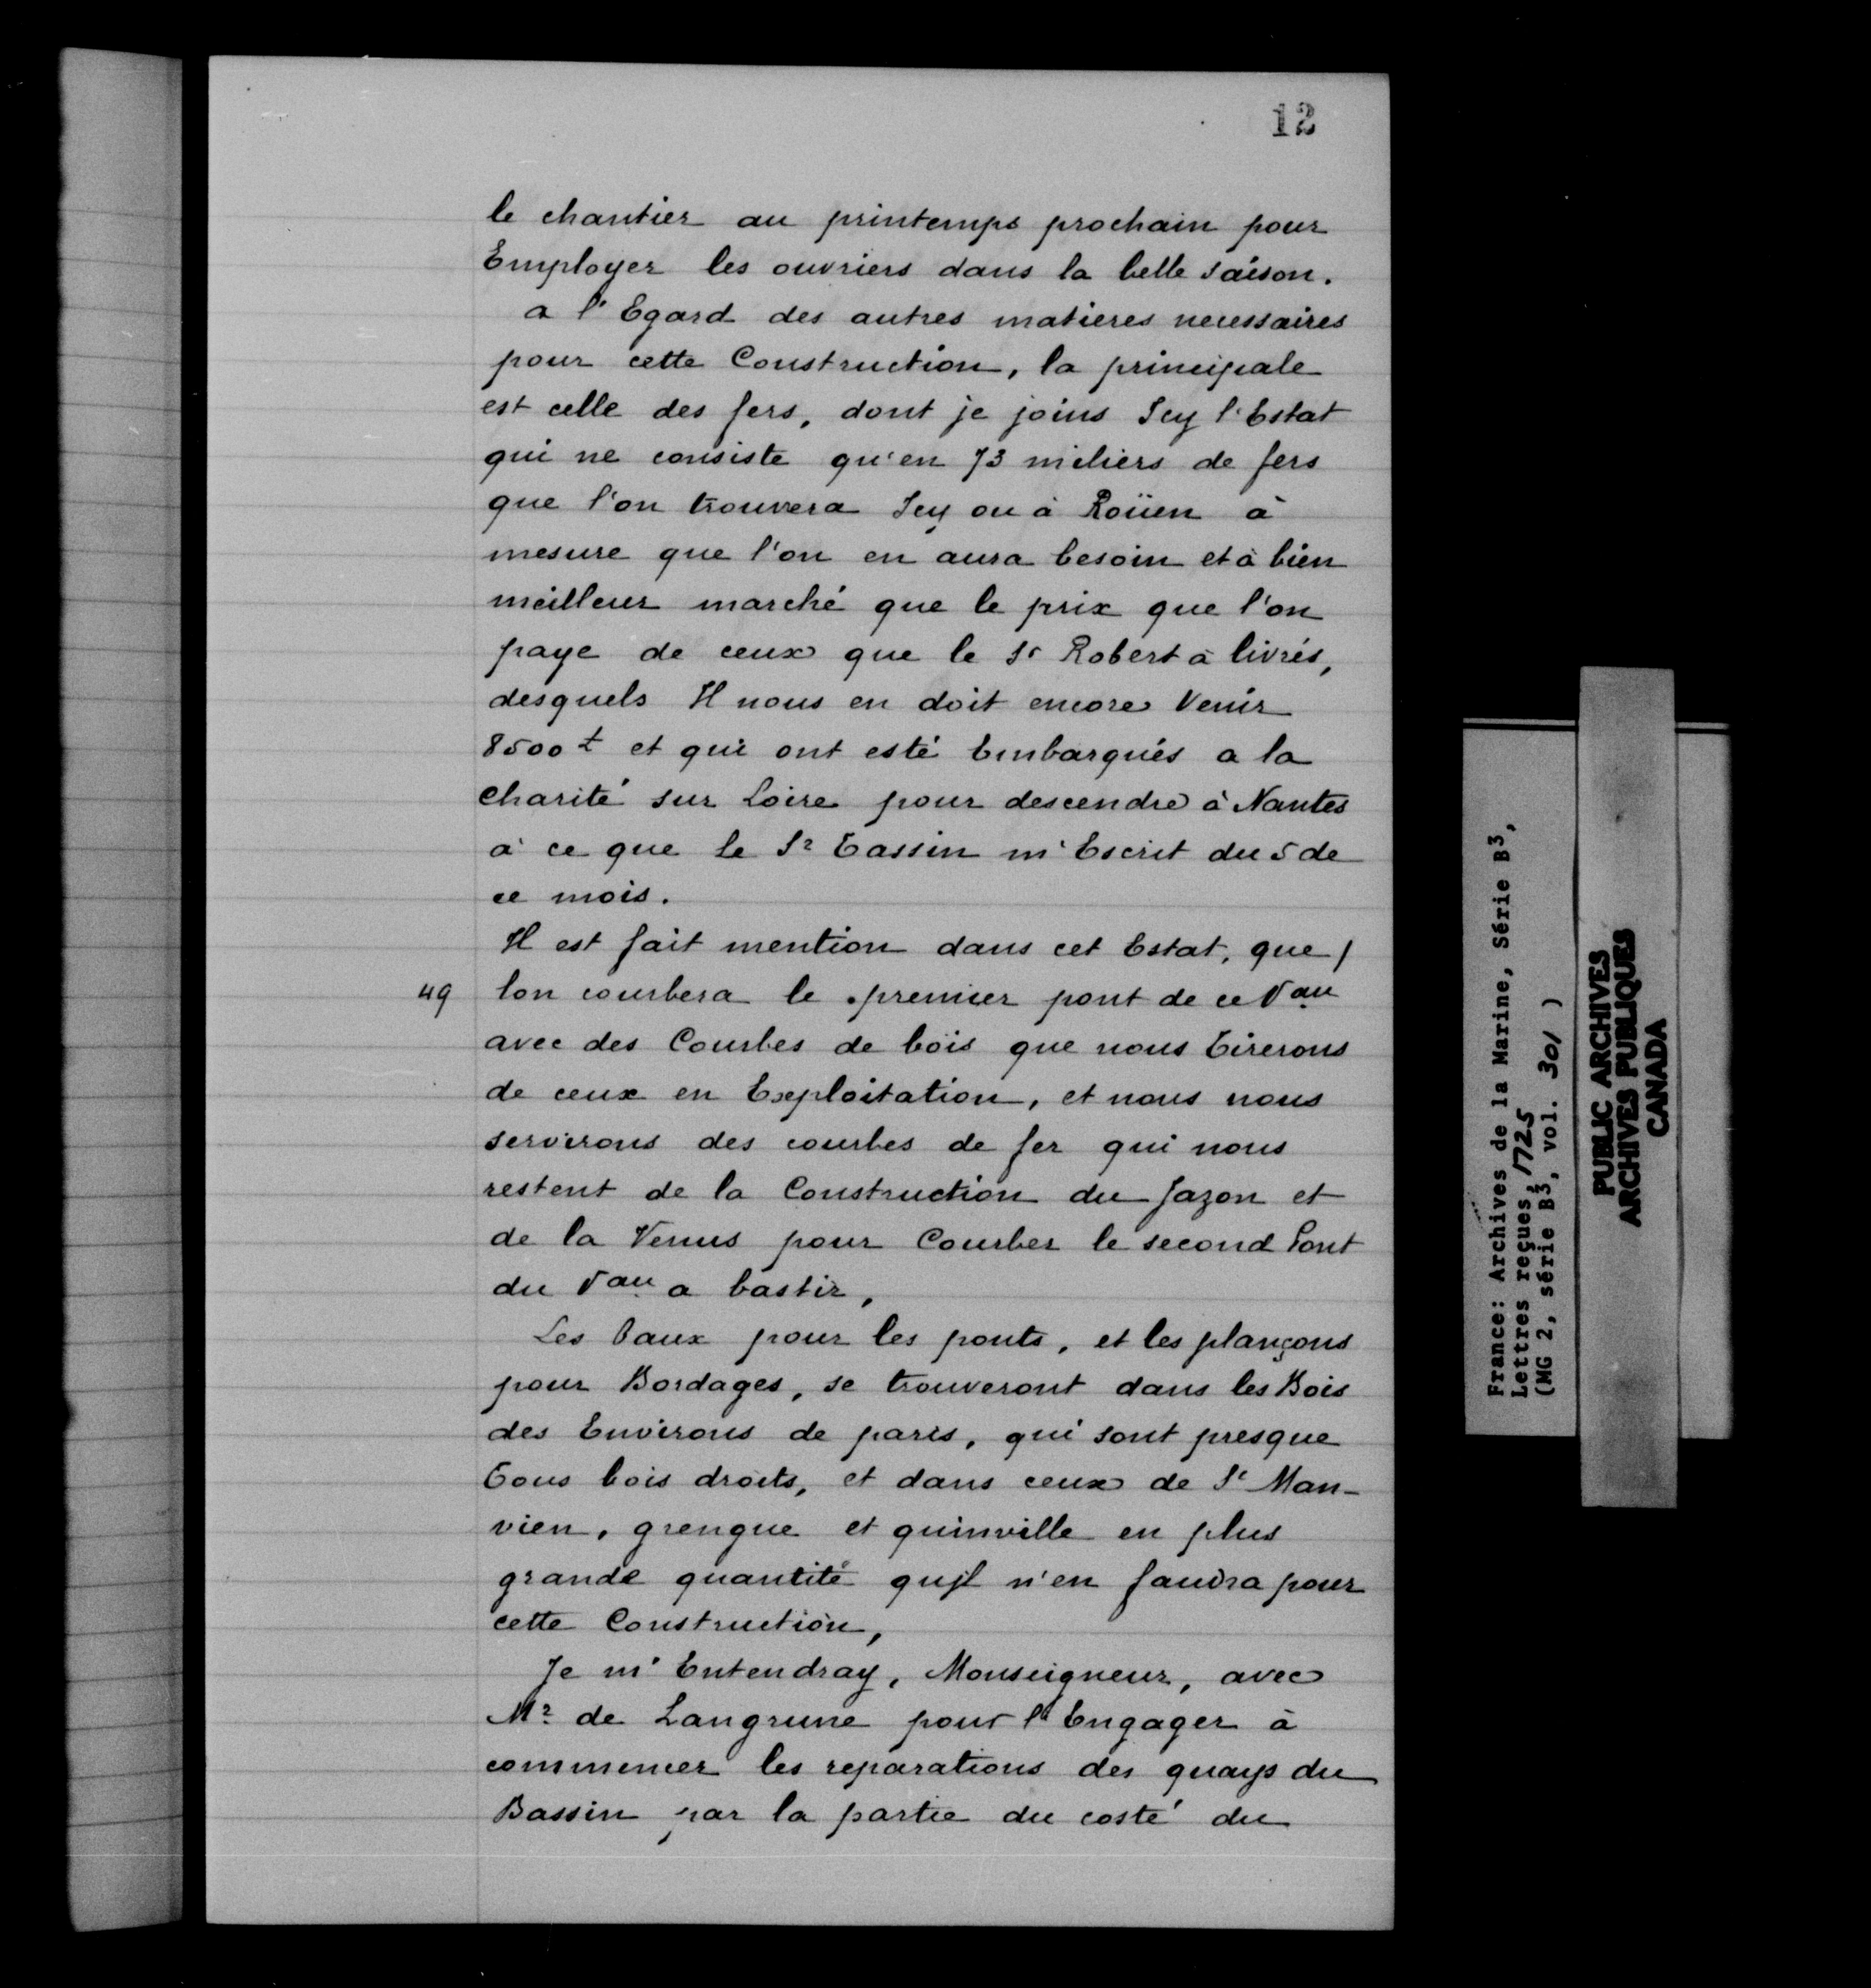 12
le chantier au printemps prochain pour
Employer les ouvriers dans la belle saison.
a l'Egard des autres matieres necessaires
pour cette Construction, la principale
est celle des fers, dont je joins Icy l'Estat
qui ne consiste qu'en 73 miliers de fers
que l'on trouvera Icy ou à Roüen à
mesure que l'on en aura besoin et à bien
meilleur marché que le prix que l'on
paye de ceux que le Sr Robert à livrés,
desquels Il nous en doit encore Venir
8500 t et qui ont esté Embarqués a la
charité sur Loire pour descendre à Nantes
a ce que le Sr Tassin m'Escrit du 5 de
ce mois.
Il est fait mention dans cet Estat, que /
49 lon courbera le premier pont de ce Vau
avec des Courbes de bois que nous Tirerons
de ceux en Exploitation, et nous nous
servirons des courbes de fer qui nous
restent de la Construction du Jazon et
de la Venus pour Courber le second Pont
du Vau a bastir,
Les Baux pour les ponts, et les plançons
pour Bordages, se trouveront dans les Bois
des Environs de paris, qui sont presque
Tous bois droits, et dans ceux de St Man-
vien, grengue et quinville en plus
grande quantité qujl n'en faudra pour
cette Construction,
Je m'Entendray, Monseigneur, avec
Mr de Langrune pour l'Engager à
commencer les reparations des quays du
Bassin par la partie du costé du
France: Archives de la Marine, Série B3,
Lettres reçues, 1725
(MG 2, série B3, vol. 301 )
PUBLIC ARCHIVES
ARCHIVES PUBLIQUES
CANADA